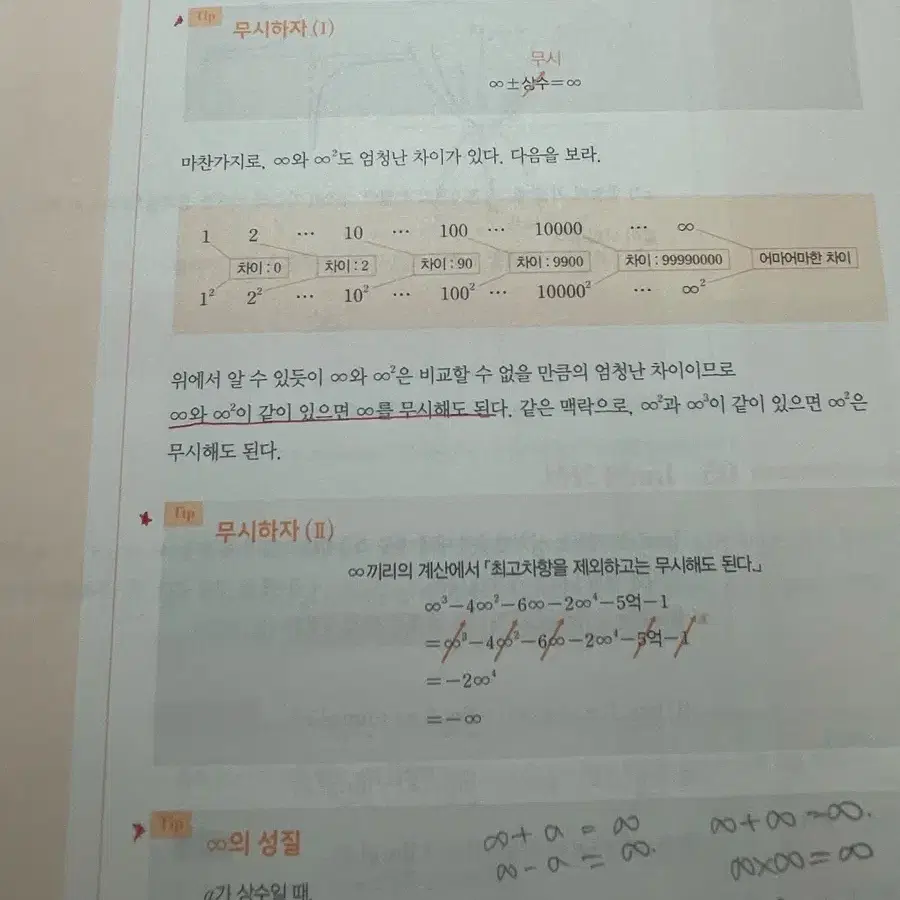 Tip
무시하자 (Ⅰ)
무시
∞±상수=∞
마찬가지로, ∞와 ∞²도 엄청난 차이가 있다. 다음을 보라.
1 2 … 10 … 100 … 10000 … ∞
차이 : 0 차이 : 2 차이 : 90 차이 : 9900 차이 : 99990000 어마어마한 차이
1² 2² … 10² … 100² … 10000² … ∞²
위에서 알 수 있듯이 ∞와 ∞²은 비교할 수 없을 만큼의 엄청난 차이이므로
∞와 ∞²이 같이 있으면 ∞를 무시해도 된다. 같은 맥락으로, ∞²과 ∞³이 같이 있으면 ∞²은
무시해도 된다.
Tip
무시하자 (Ⅱ)
∞끼리의 계산에서 「최고차항을 제외하고는 무시해도 된다.」
∞³−4∞²−6∞−2∞⁴−5억−1
=∞³−4∞²−6∞−2∞⁴−5억−1
=−2∞⁴
=−∞
Tip
∞의 성질
∞+a=∞ ∞+∞=∞.
∞-a=∞. ∞×∞=∞
a가 상수일 때,